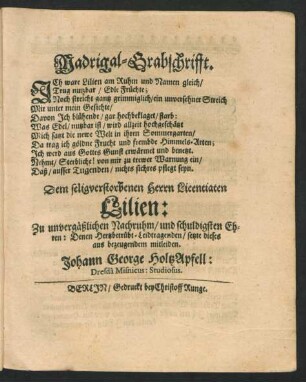 Madrigal-Grabschrifft.
ICh ware Lilien am Ruhm und Namen gleich/
Trug nutzbar/ Edle Früchte;
Noch streicht gantz grimmiglich/ein unversehner Streich
Mir unter mein Gesichte/
Davon Ich blühende/ gar hochbeklaget/ starb:
Was Edel/ nutzbar ist/ wird allzeit hochgeschätzt
Mich setzt die newe Welt in ihren Sommergarten/
Da trag ich göldne Frucht und frembde Himmels-Arten;
Ich werd aus Gottes Gunst erwärmet und benetzt.
Nehmt/ Sterbliche! von mir zu trewer Warnung ein/
Daß/ ausser Tugenden/ nichts sichres pflegt seyn.
Dem seligverstorbenen Herrn Licentiaten
Lilien:
Zu unvergäßlichen Nachruhm/ und schuldigsten Eh-
ren: Denen Hertzbetrübt-Leidtragenden/ setzte dieses
aus bezeugendem mitleiden.
Johann George HoltzApfell:
Dresdâ Misnicus: Studiosus.
BERLIN/ Gedruckt bey Christoff Runge.